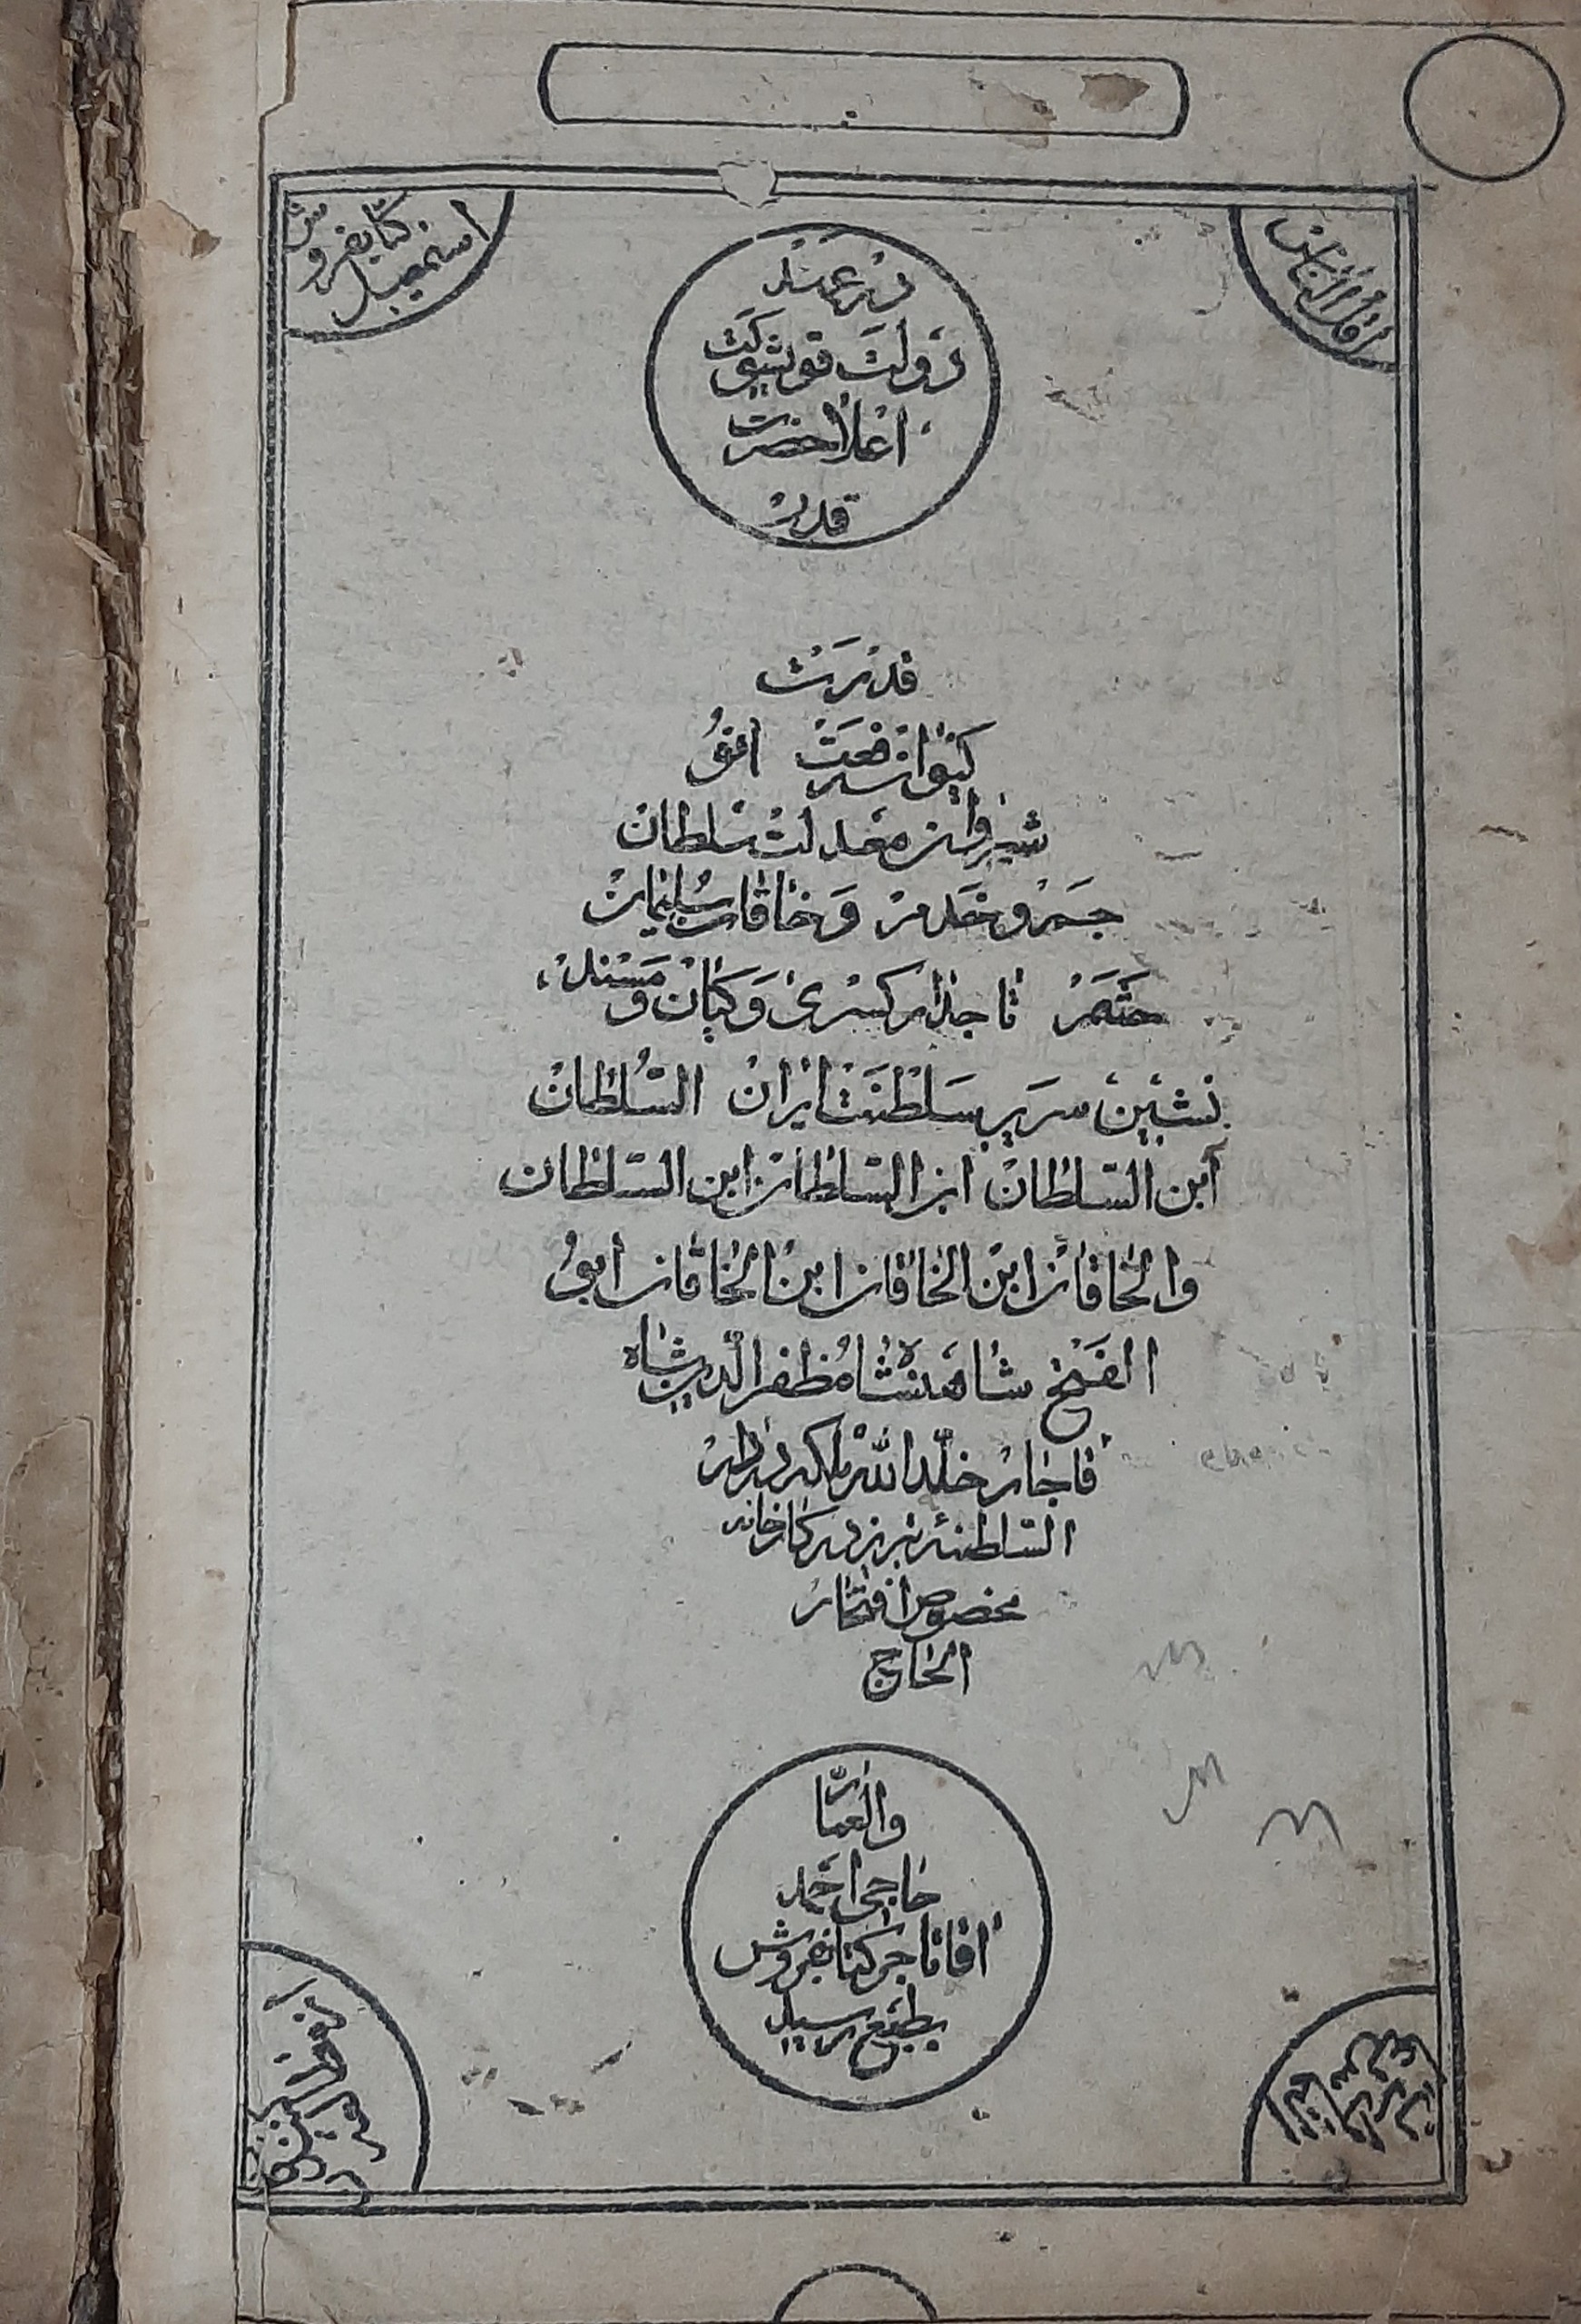 اقل الناس
اسمعیل
کتابفروش
در عهد
دولت قویشوکت
اعلاحضرت
قدر
قدرت
کیوان رفعت انو
شیروان معدلت سلطان
جم و خدم و خاقان سلیمان
حشم تاجدار کسری و کیان و مسند
نشین سریر سلطنت ایران السلطان
ابن السلطان ابن السلطان ابن السلطان
والخاقان ابن الخاقان ابن الخاقان ابو
الفتح شاهنشاه مظفرالدین شاه
قاجار خلدالله ملکه در دار
السلطنه تبریز در کارخانه
مخصوص افتخار
الحاج
والعمار
حاجی احمد
اقا تاجر کتابفروش
بطبع رسید